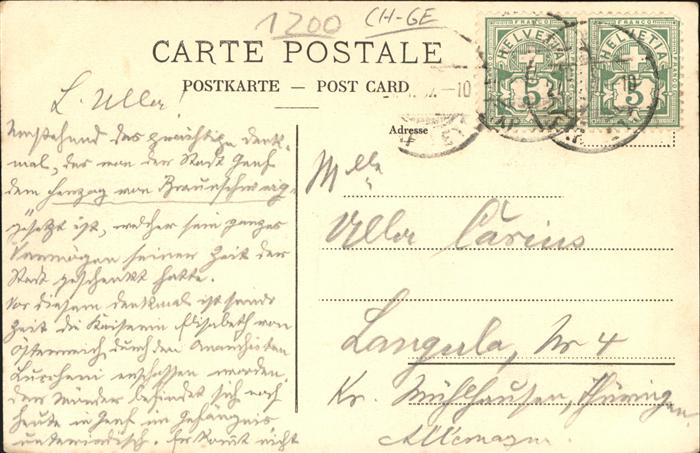 1200
CH-GE
CARTE POSTALE
POSTKARTE — POST CARD
Adresse
HELVETIA
FRANCO
5
HELVETIA
FRANCO
5
L. Ulla!
Umstehend das prächtige Denk-
mal, das von der Stadt Genf
dem Herzog von Braunschweig
gesetzt ist, welcher sein ganzes
Vermögen seiner Zeit der
Stadt geschenkt hatte.
Vor diesem Denkmal ist seiner
Zeit die Kaiserin Elisabeth von
Österreich, durch den Anarchisten
Luccheni erschossen worden,
der Mörder befindet sich noch
heute in Genf im Gefängnis
unterirdisch. Er kommt nicht
Mlle
Ulla Carius
Langula, Nr 4
Kr. Mühlhausen, Thüringen
Allemagne.